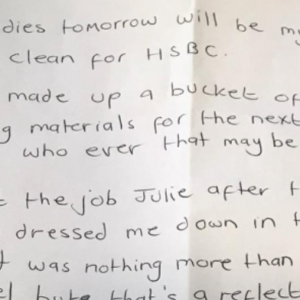 dies tomorrow will be my
clean for HSBC.
made up a bucket of
g materials for the next
who ever that may be
the job Julie after
dressed me down in
was nothing more than
but that's a reflect